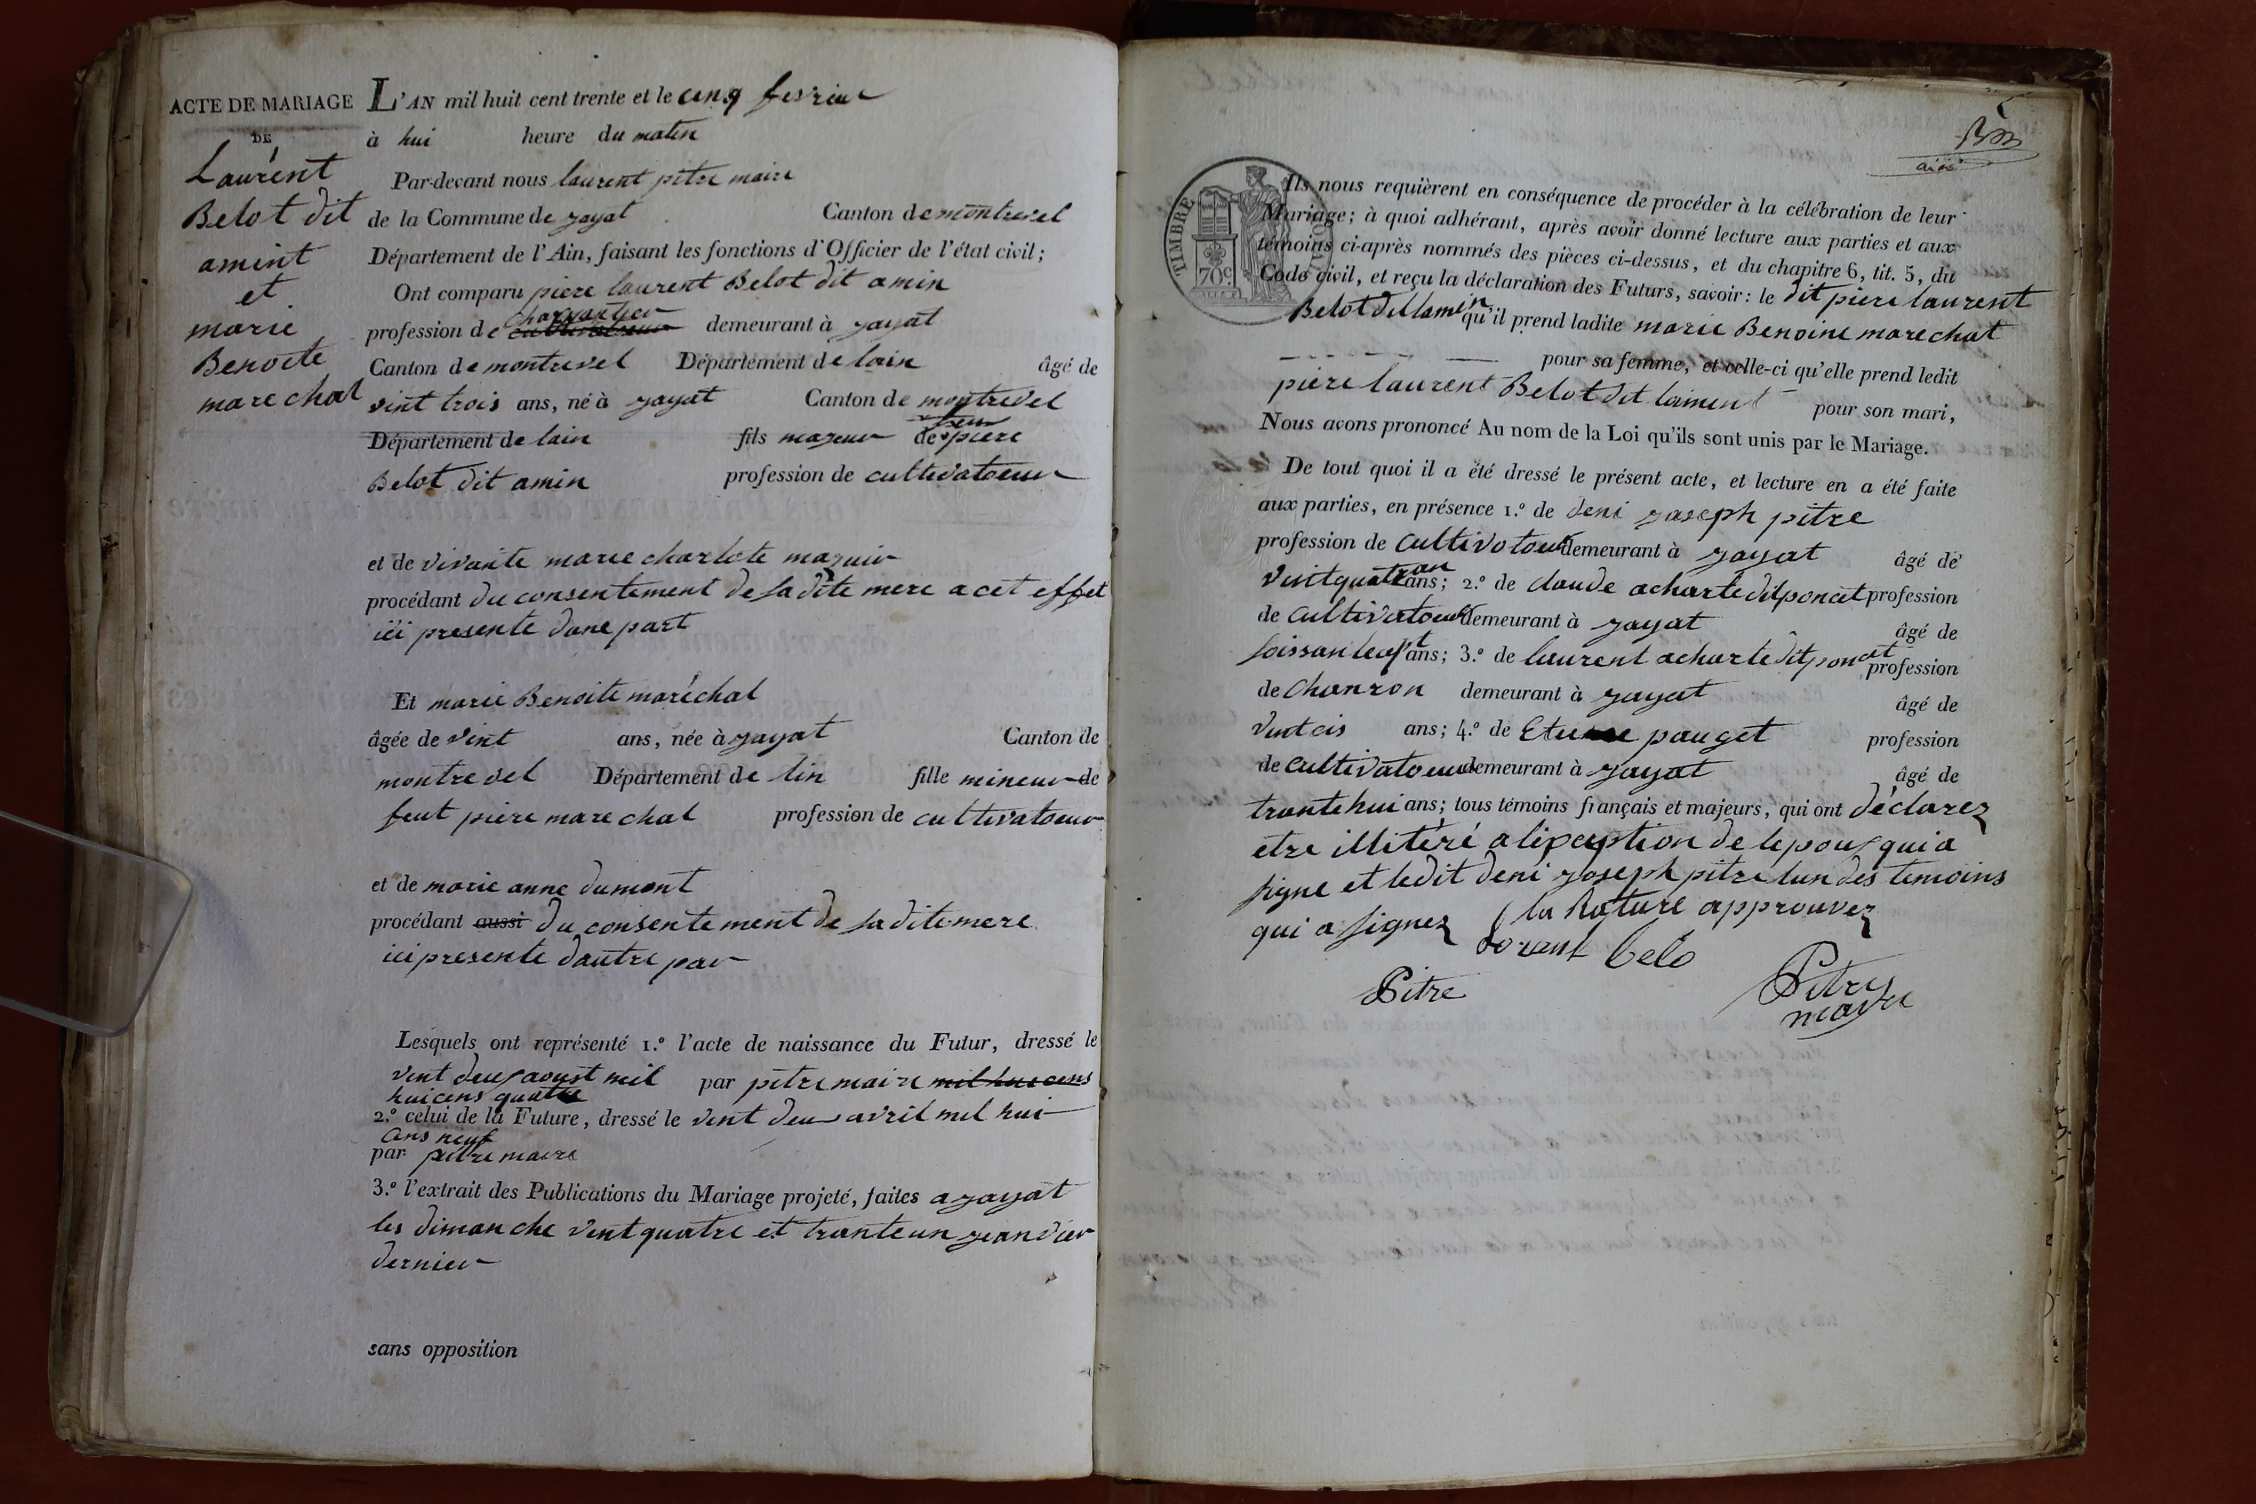 ACTE DE MARIAGE
DE
Laurent
Belot dit
amint
et
marie
Benoite
marechal
L'AN mil huit cent trente et le cinq fevrier
à hui heure du matin
Par-devant nous laurent pitre maire
de la Commune de jayat Canton de montrevel
Département de l'Ain, faisant les fonctions d'Officier de l'état civil;
Ont comparu piere laurent Belot dit amin
charpantier
profession de cultivateur demeurant à jayat
Canton de montrevel Département de lain âgé de
vint trois ans, né à jayat Canton de montrevel
feu
Département de lain fils majeur de piere
Belot dit amin profession de cultivatoeur
et de vivante marie charlote majuir
procédant du consentement de sa dite mere a cet effet
ici presente dune part
Et marie Benoite maréchal
âgée de vint ans, née à jayat Canton de
montrevel Département de lin fille mineur de
feut piere marechal profession de cultivatoeur
et de marie anne dumont
procédant aussi du consentement de sa dite mere
ici presente dautre par
Lesquels ont représenté 1.º l'acte de naissance du Futur, dressé le
vint deus aoust mil par pitre maire mil hui cens
hui cens quatre
2.º celui de la Future, dressé le vint deu avril mil hui
cens neuf
par pitre maire
3.º l'extrait des Publications du Mariage projeté, faites a jayat
les dimanche vint quatre et trante un jeanvier
dernier
sans opposition
TIMBRE
70c
Ils nous requièrent en conséquence de procéder à la célébration de leur
Mariage; à quoi adhérant, après avoir donné lecture aux parties et aux
témoins ci-après nommés des pièces ci-dessus, et du chapitre 6, tit. 5, du
Code civil, et reçu la déclaration des Futurs, savoir: le dit piere laurent
Belot dit lamin qu'il prend ladite marie Benoine marechat
pour sa femme, et celle-ci qu'elle prend ledit
piere laurent Belot dit laiment pour son mari,
Nous avons prononcé Au nom de la Loi qu'ils sont unis par le Mariage.
De tout quoi il a été dressé le présent acte, et lecture en a été faite
aux parties, en présence 1.º de deni joseph pitre
profession de cultivatoeur demeurant à jayat âgé de
vint quatre an ans; 2.º de claude acharte dit poncet profession
de cultivatoeur demeurant à jayat âgé de
soissante set ans; 3.º de laurent acharte dit poncet profession
de charron demeurant à jayat âgé de
vint cis ans; 4.º de Etienne pauget profession
de cultivatoeur demeurant à jayat âgé de
trante hui ans; tous témoins français et majeurs, qui ont déclarez
etre illitéré a lexeption de lepous qui a
signe et ledit deni joseph pitre lun des temoins
qui a signez la Rature approuvez
Lorent belo
Pitre
Pitre
mayre